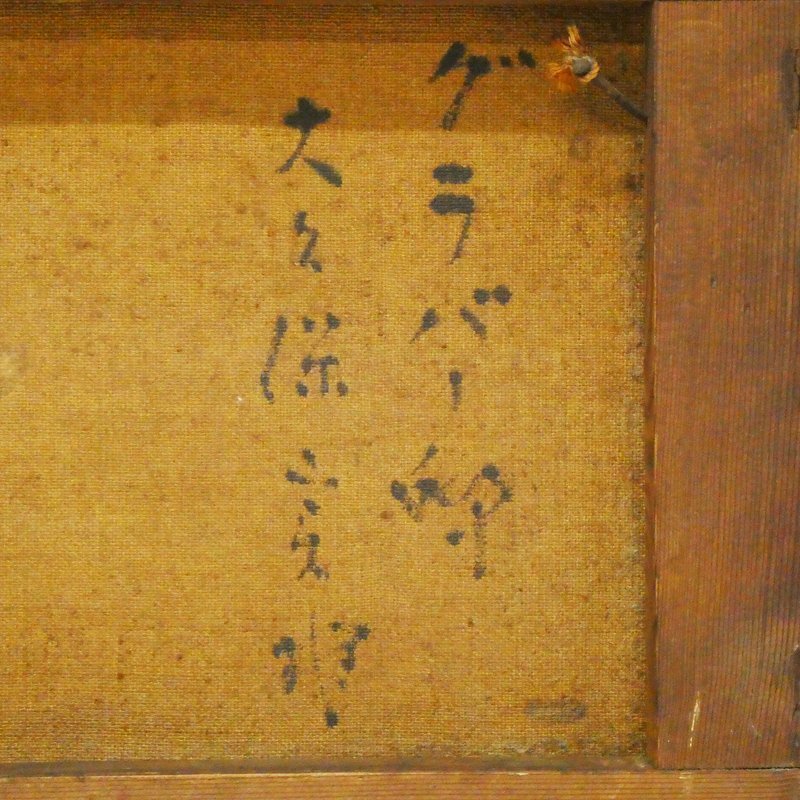 グラバー邸
大久保